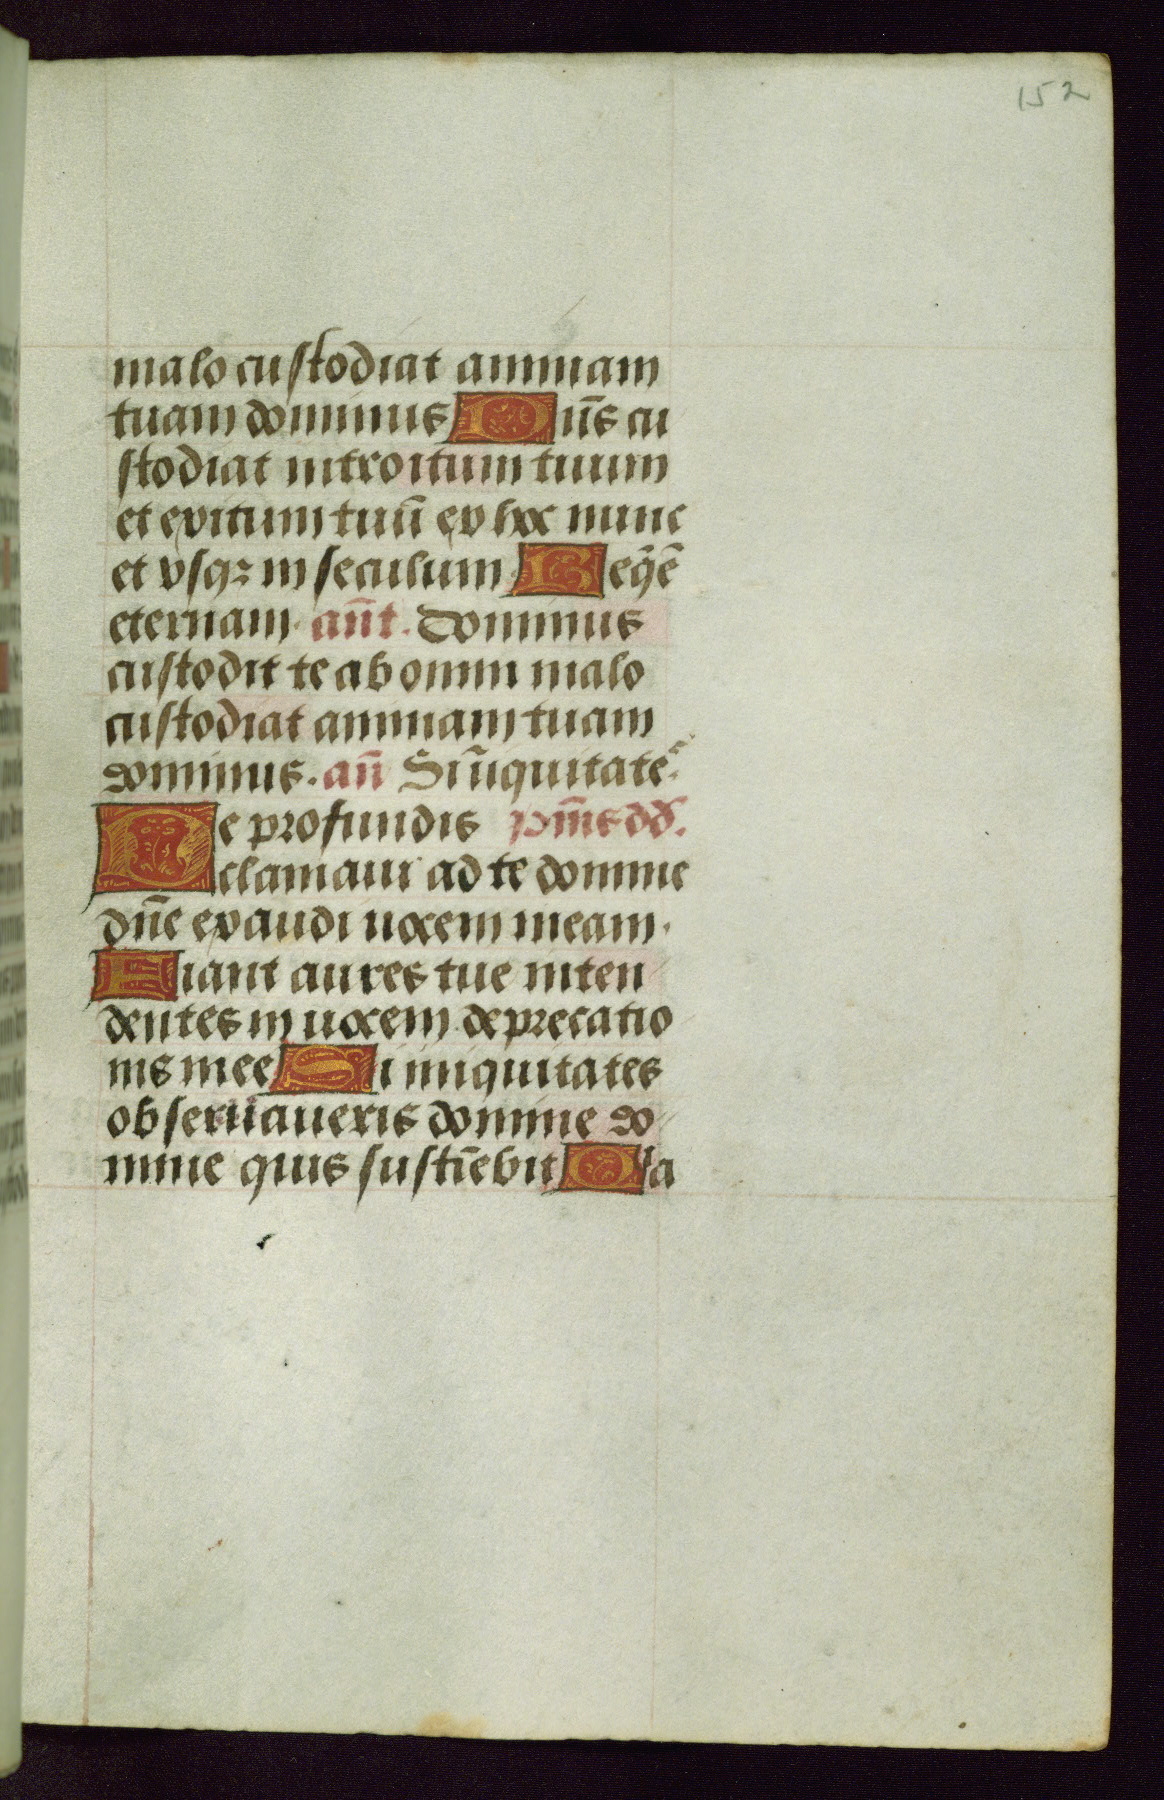 152
malo custodiat animam
tuam dominus Dn̄s cu
stodiat introitum tuum
et exitum tuū ex hoc nunc
et vsqꝫ in seculum. Reqē
eternam. an̄t. Dominus
custodit te ab omni malo
custodiat animam tuam
dominus. an̄ Si īniquitate᷒.
De profundis p̄m̄s dd̄.
clamaui ad te domine
dn̄e exaudi uocem meam.
Fiant aures tue inten
dentes in uocem deprecatio
nis mee Si iniquitates
obseruaueris domine do
mine quis sustīebit Qīa